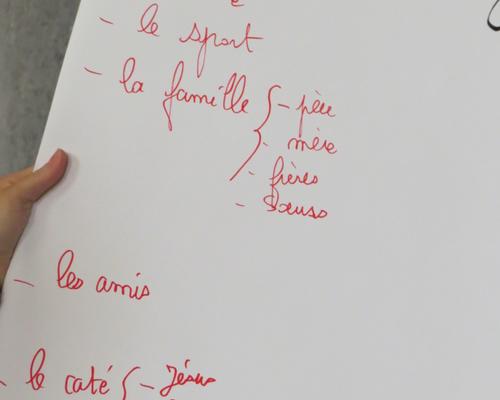 - le sport
- la famille { - père
- mère
- frères
- Sœurs
- les amis
- le caté { - Jésus